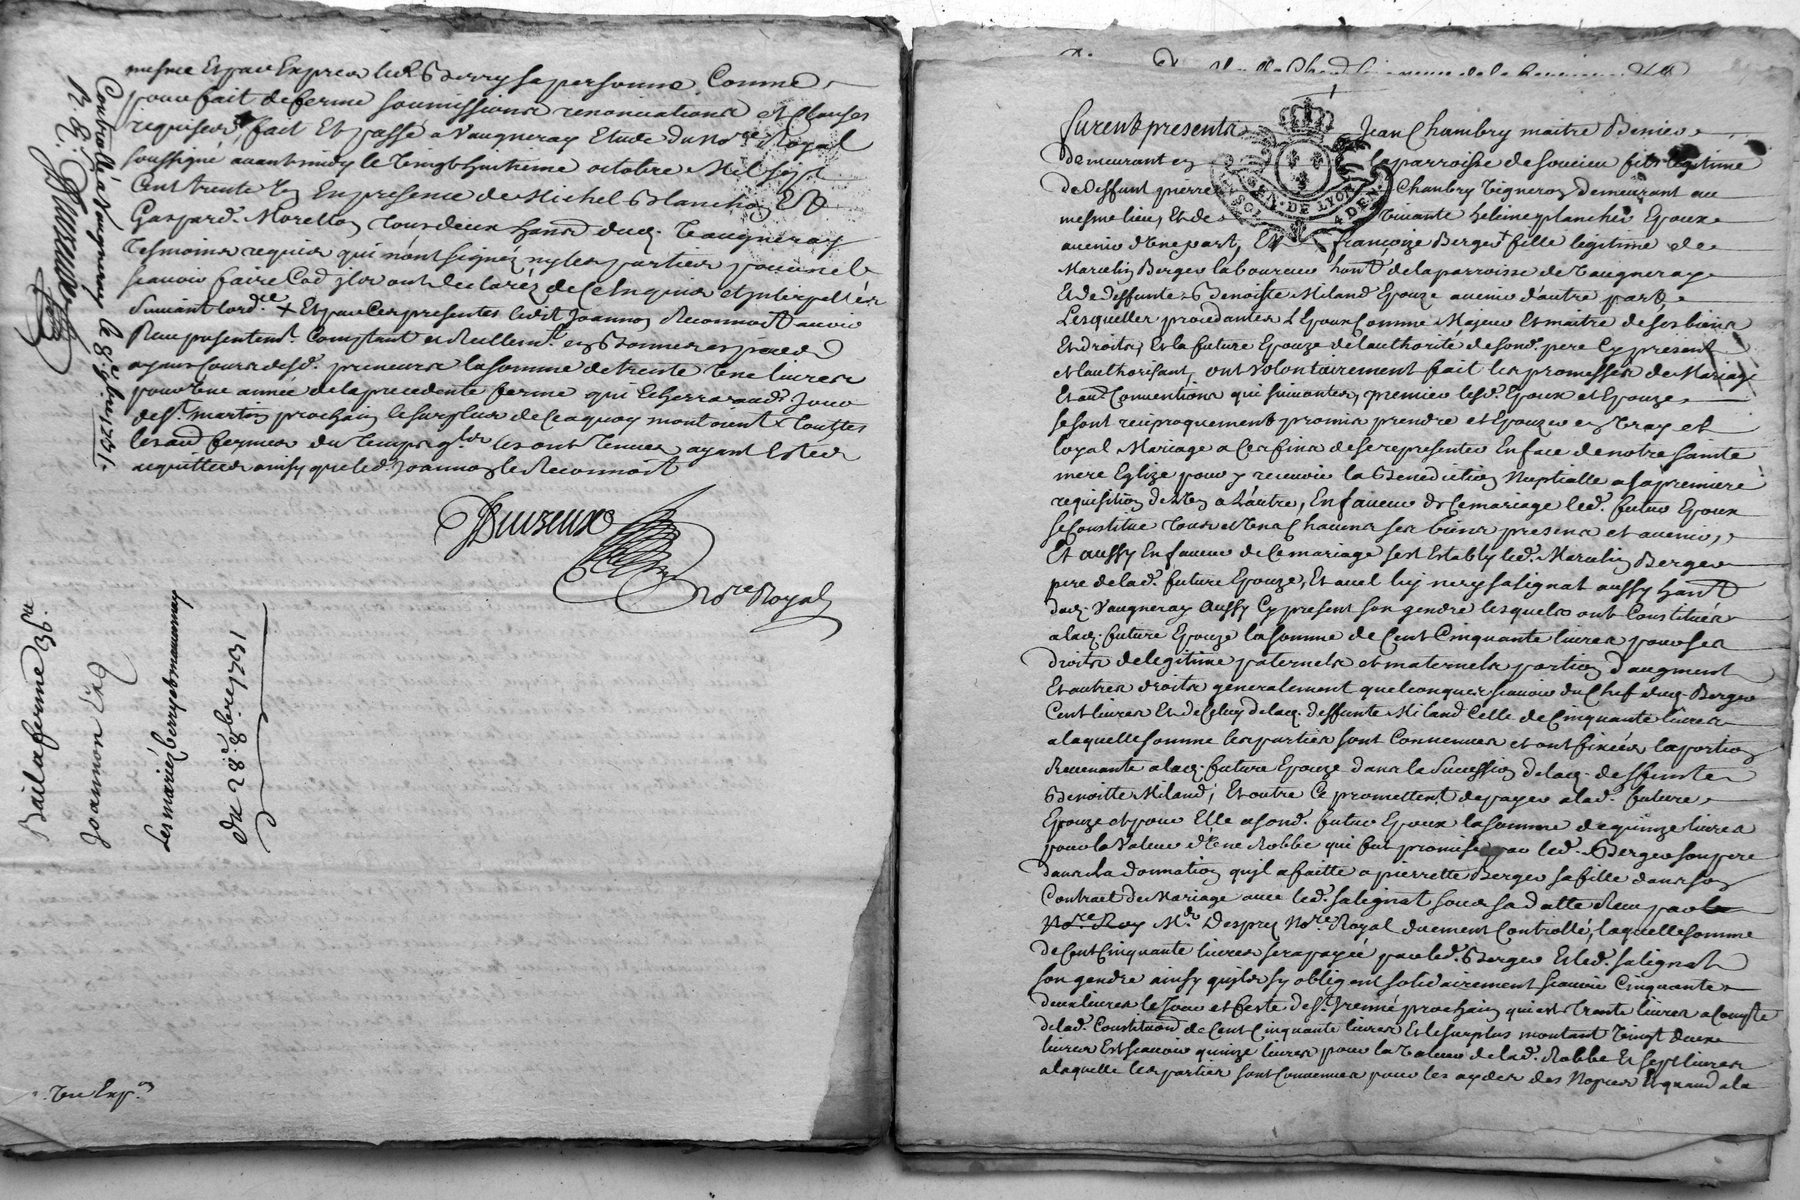 mesme Et par Exprès led. Berry sa personne, Comme
pour fait de ferme soumissions renonciations et Clauses
requises, fait Et passé a Vaugneray Etude du No.re Royal
soussigné avant midy le vingt huitieme octobre Mil sept
Cent trente Un En presence de Michel Blanchon Et
Gaspard Moretton tous deux hants. dud. Vaugneray
tesmoins requis qui n'ont signéz ny les parties pour ne le
scavoir faire Cad ilz ont declaréz de Ce Enquis et Interpelléz
Suivant lord.ce + Et par Ces presentes ledit Joannon Reconnoit avoir
Receu presentemt. Comptant et Reellemt. en Bonnes especes
ayans Cours desd. preneurs la somme de trente Une livres
pour Une année de la precedente ferme qui Echerra aud. Jour
de St. martin prochain le surplus de Ce a quoy montoient touttes
les aud. fermes du temps qu'ilz les ont tenues ayant Estée
acquittées ainsy que led. Joannon le Reconnoit
No.re Royal
Controllé a Vaugneray le 8e. 9bre 1731.
R. 12 s.
Bail a ferme
Joannon
Les mariéz berry et bonnemay
Du 28e. 8bre 1731
Furent presents Jean Chambry maitre
demeurant en la parroisse de Soucieu fils legitime
de deffunt pierre Chambry Vigneron demeurant au
mesme lieu, Et de Vivante heleine plancher Epoux
avenir d'Une part, Et françoize Berger fille legitime de
Marcelin Berger laboureur hant. de la parroisse de Vaugneray
Et de deffunte Benoiste Miland Epouze avenir d'autre part
Lesquelles procedantes L'Epoux Comme Majeur Et maitre de ses biens
Et droits, Et la future Epouze de l'authorité de sond. pere Cy present
et l'authorisant, ont Volontairement fait les promesses de Mariage
Et aud. Conventions qui suivantes, premier lesd. Epoux et Epouze
se sont reciproquement promis prendre et Epouzer en Vray et
loyal Mariage a Ces fins de se representer En face de notre sainte
mere Eglize pour y recevoir la Benediction Nuptialle a sa premiere
requisition de l'Un a L'autre, En faveur de Ce mariage led. futur Epoux
se Constitue tous et Uns Chacuns ses biens presens et avenir,
Et aussy En faveur de Ce mariage sest Establÿ led. Marcelin Berger
pere de lad. future Epouze, Et avel luy nery salignat aussy hant.
dud. Vaugneray aussy Cy present son gendre lesquels ont Constituéz
a lad. future Epouze la somme de Cent Cinquante livres pour ses
droits de legitime paternels et maternels portion d'augment
Et autres droits generalement quelconques scavoir du Chef dud. Berger
Cent livres Et de Celuy de lad. deffunte Miland Celle de Cinquante livres
a laquelle somme les parties sont Convenues et ont fixées la portion
Revenante a lad. future Epouze dans la Succession de lad. deffunte
Benoitte Miland, Et outre Ce promettent de payer a lad. future
Epouze et pour Elle a sond. futur Epoux la somme de quinze livres
pour la Valeur d'Une Robbe, qui fut promise par led. Berger son pere
dans la donation qu'il a faitte a pierrette Berger sa fille dans son
Contract de Mariage avec led. salignat sous sa datte Receu par
Me. Desprez No.re Royal duement Controllé, laquelle somme
de Cent Cinquante livres sera payée par led. Berger Et led. salignat
son gendre ainsy qu'ils sy obligent solidairement scavoir Cinquante
deux livres le Jour et feste de St. Irenné prochain qui est trente livres a Compte
de lad. Constituon. de Cent Cinquante livres Et le surplus montant Vingt deux
livres Est scavoir quinze livres pour la Valeur de lad. Robbe Et sept livres
a laquelle les parties sont Convenues pour les ayder des Nopces Et quand a la
GEN. DE LYON
4 DEN